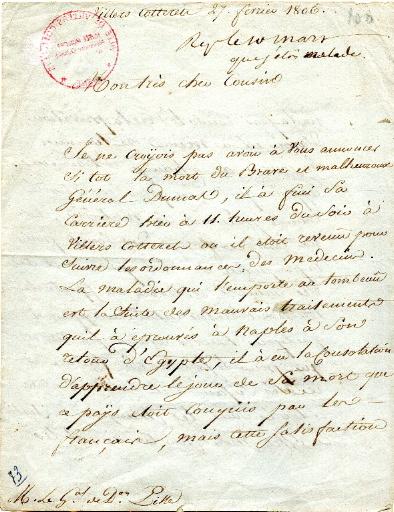 Villers Cotterets 27. fevrier 1806.
Rep. le 10 mars
que j'étois malade
Mon très cher Cousin
Je ne croyois pas avoir à Vous annoncer
Si tot la mort du Brave et malheureux
Général Dumas, il à fini Sa
Carriere hier à 11. heures du Soir à
Villers Cotteret ou il etoit revenu pour
Suivre les ordonnances des medecin.
La maladie qui l'emporte au tombeau
est la Suite des mauvais traitements
qu'il à eprouvés à Naples à Son
retour d'Egypte, il à eu la Consolation
d'apprendre le jour de Sa mort que
ce païs étoit conquis par les
français, mais cette Satisfaction
M. Le Gal. de Don. Pille